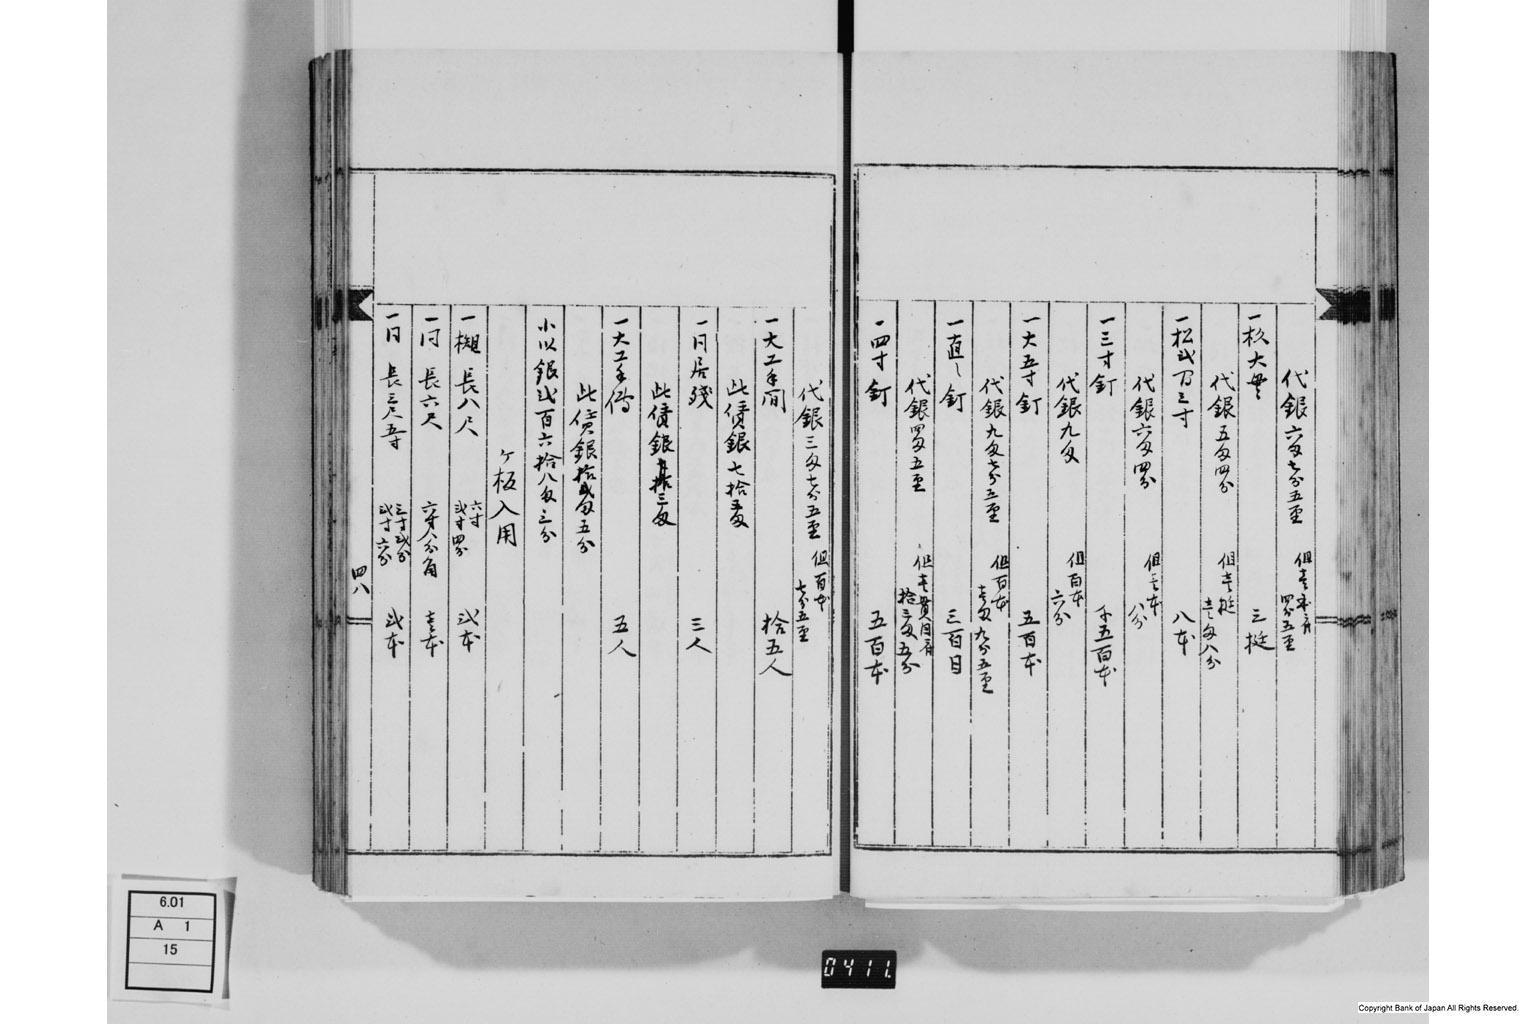 代銀六匁七分五厘 但壱本ニ付 四分五厘
一杉大貫 三挺
代銀五匁四分 但壱挺 壱匁八分
一松弐間三寸 八本
代銀六匁四分 但壱本 八分
一三寸釘 千五百本
代銀九匁 但百本 六分
一大五寸釘 五百本
代銀九匁七分五厘 但百本 壱匁九分五厘
一直し釘 三百目
代銀四匁五厘 但壱貫目ニ付 拾三匁五分
一四寸釘 五百本
代銀三匁七分五厘 但百本 七分五厘
一大工手間 拾五人
此債銀七拾五匁
一同居残 三人
此債銀
一大工手伝 五人
此債銀拾弐匁五分
小以銀弐百六拾八匁三分
ケ板入用
一槻 長八尺 六寸 弐寸四分 弐本
一同 長六尺 六寸八分角 壱本
一同 長三尺五寸 三寸弐分 弐寸六分 弐本
四八
6.01
A 1
15
0411.
Copyright Bank of Japan All Rights Reserved.